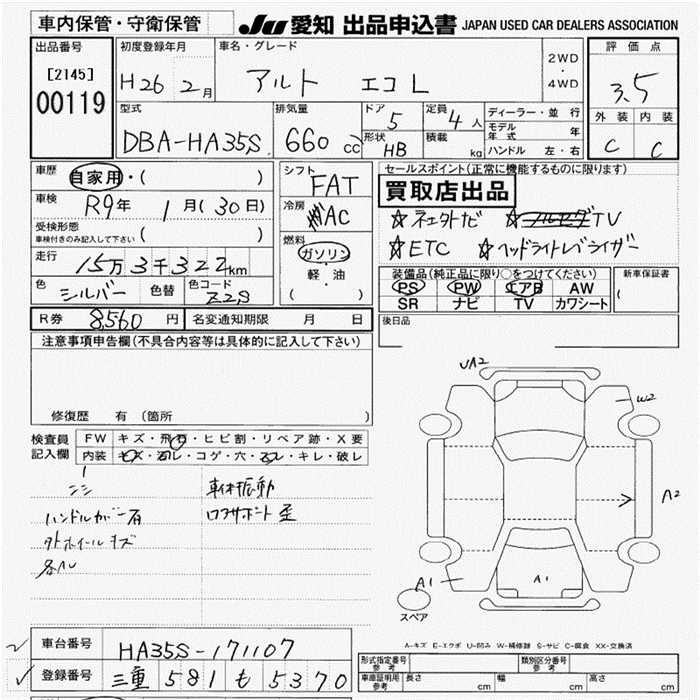 車内保管・守衛保管
JU 愛知 出品申込書 JAPAN USED CAR DEALERS ASSOCIATION
出品番号
[2145]
00119
初度登録年月
H26 2月
車名・グレード
アルト エコL
2WD
・
4WD
評価点
3.5
外装 内装
C C
型式
DBA-HA35S
排気量
660 cc
ドア
5
形状
HB
定員
4人
積載
kg
ディーラー・並行
モデル年式 年
ハンドル 左・右
車歴
自家用・( )
車検
R9年 1月(30日)
受検形態
車検付きのみ記入して下さい ( )
走行
15万3千322km
色
シルバー
色替
色コード
Z2S
シフト
FAT
冷房
AC
燃料
ガソリン
・
軽・油
( )
セールスポイント(正常に機能するものに限ります)
買取店出品
☆ネエクトナビ ☆フルセグTV
☆ETC ☆ヘッドライトレベライザー
装備品(純正品に限り○をつけてください)
PS PW エアB AW
SR ナビ TV カワシート
新車保証書
(
後日品
R券 8,560円
名変通知期限 月 日
注意事項申告欄(不具合内容等は具体的に記入して下さい)
修復歴 有(箇所 )
検査員記入欄
FW キズ・飛石・ヒビ割・リペア跡・X要
内装 キズ・ヨゴレ・コゲ・穴・スレ・キレ・破レ
車体振動
ハンドルカバー有
ロアサポート歪
外ホイールキズ
UA2
W2
A2
A1
A1
スペア
A-キズ E-エクボ U-凹み W-補修跡 S-サビ C-腐食 XX-交換済
車台番号 HA35S-171107
登録番号 三重 581 も 5370
形式指定番号 参考
類別区分番号 参考
車庫証明用 参考
長さ cm 幅 cm 高さ cm